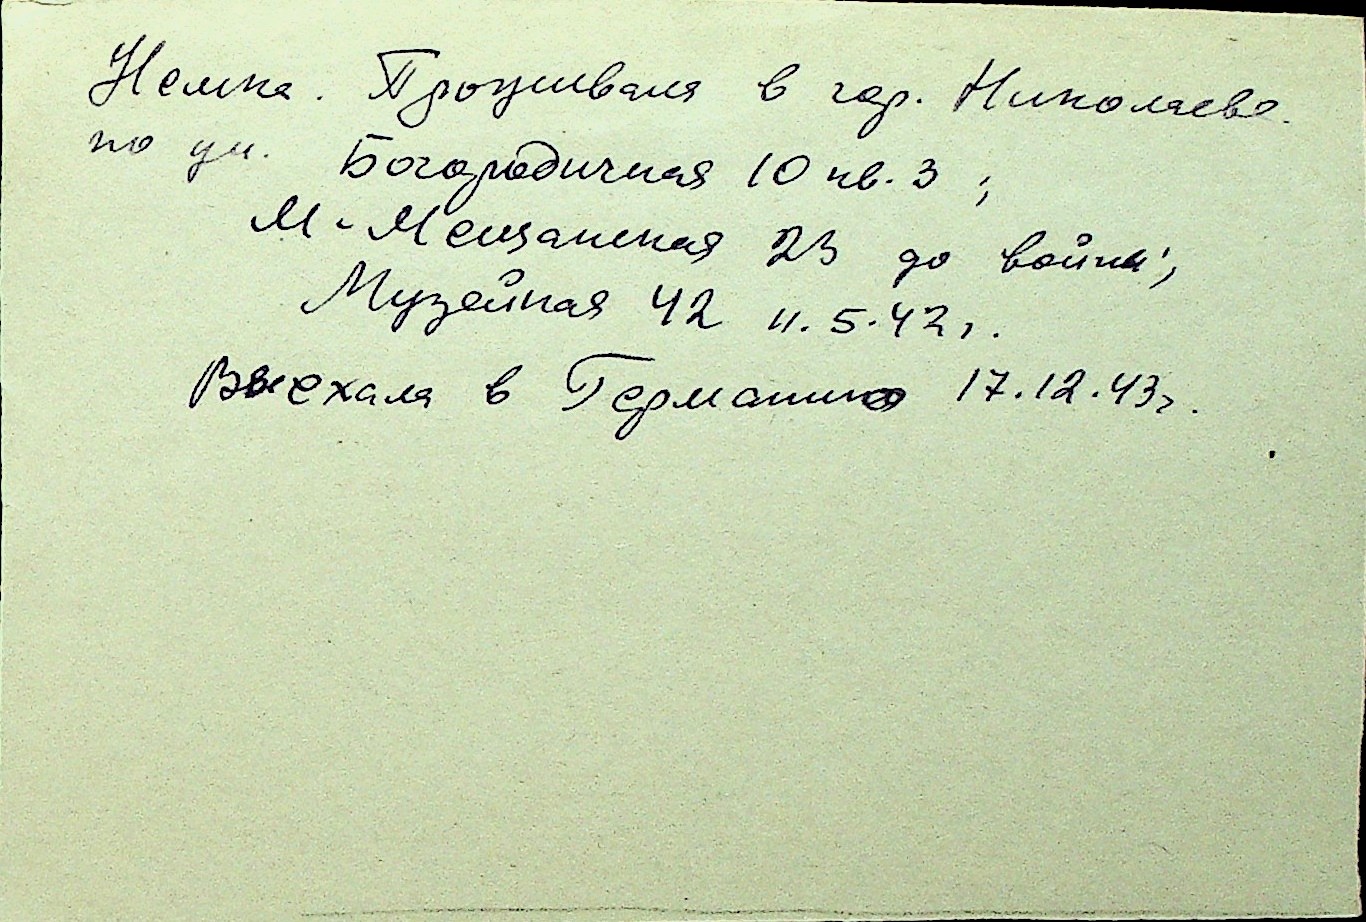 Немка. Проживала в гор. Николаеве.
по ул. Богородичная 10 кв. 3 ;
М-Мещанская 23 до войны;
Музейная 42 11.5.42г.
Выехала в Германию 17.12.43г.